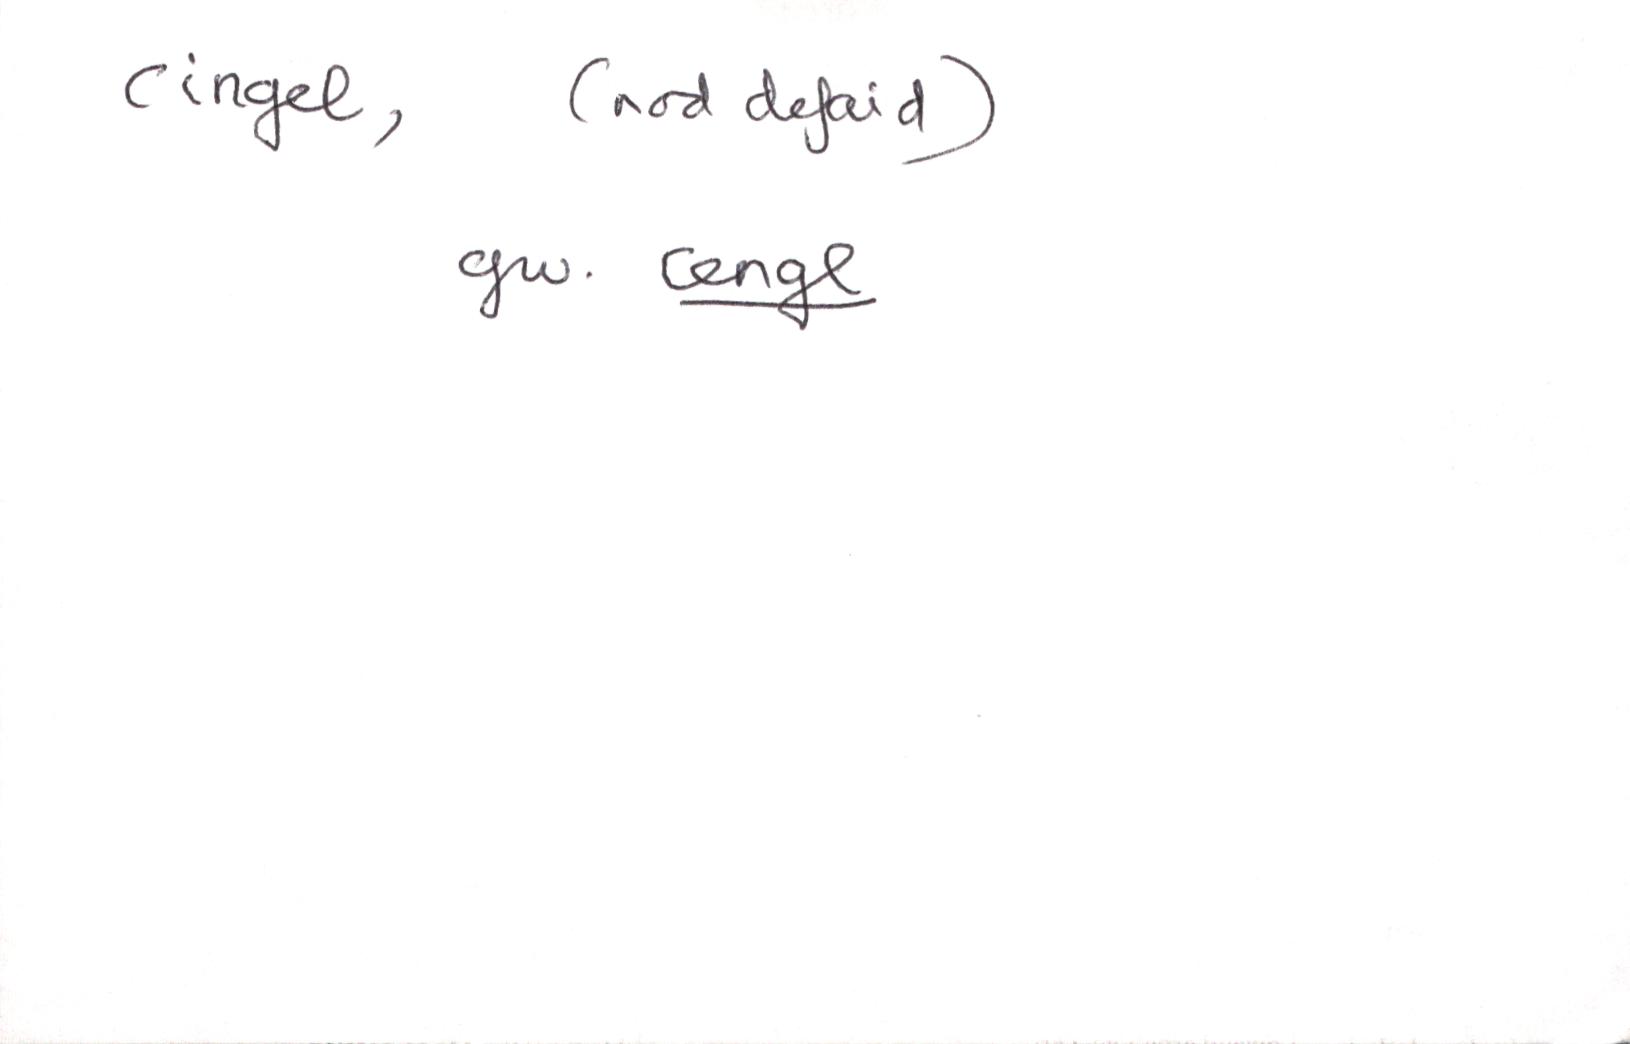 cingel, (nod defaid)
gw. cengl